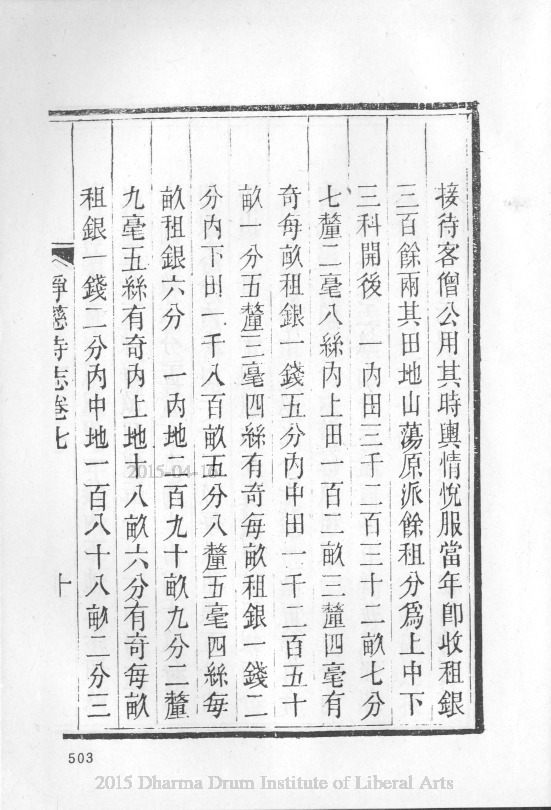 接待客僧公用其時輿情悅服當年卽收租銀
三百餘兩其田地山蕩原派餘租分爲上中下
三科開後　一內田三千二百三十二畝七分
七釐二毫八絲內上田一百二畝三釐四毫有
奇每畝租銀一錢五分內中田一千二百五十
畝一分五釐三毫四絲有奇每畝租銀一錢二
分內下田一千八百畝五分八釐五毫四絲每
畝租銀六分　一內地二百九十畝九分二釐
九毫五絲有奇內上地十八畝六分有奇每畝
租銀一錢二分內中地一百八十八畝二分三
淨慈寺志卷七
十
2015-04-16
503
2015 Dharma Drum Institute of Liberal Arts